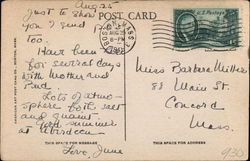 Aug 25
Just to show
you I send POST CARD
too
Have been
for several days
with Mother and
Bud.
Lots of atmo-
sphere both salt
and quaint.
summer
at
Love, June
Miss Barbara Miller
88 Main St.
Concord
Mass.
THIS SPACE FOR MESSAGE
THIS SPACE FOR ADDRESS
BOSTON MASS
AUG 25
PM
U.S. Postage